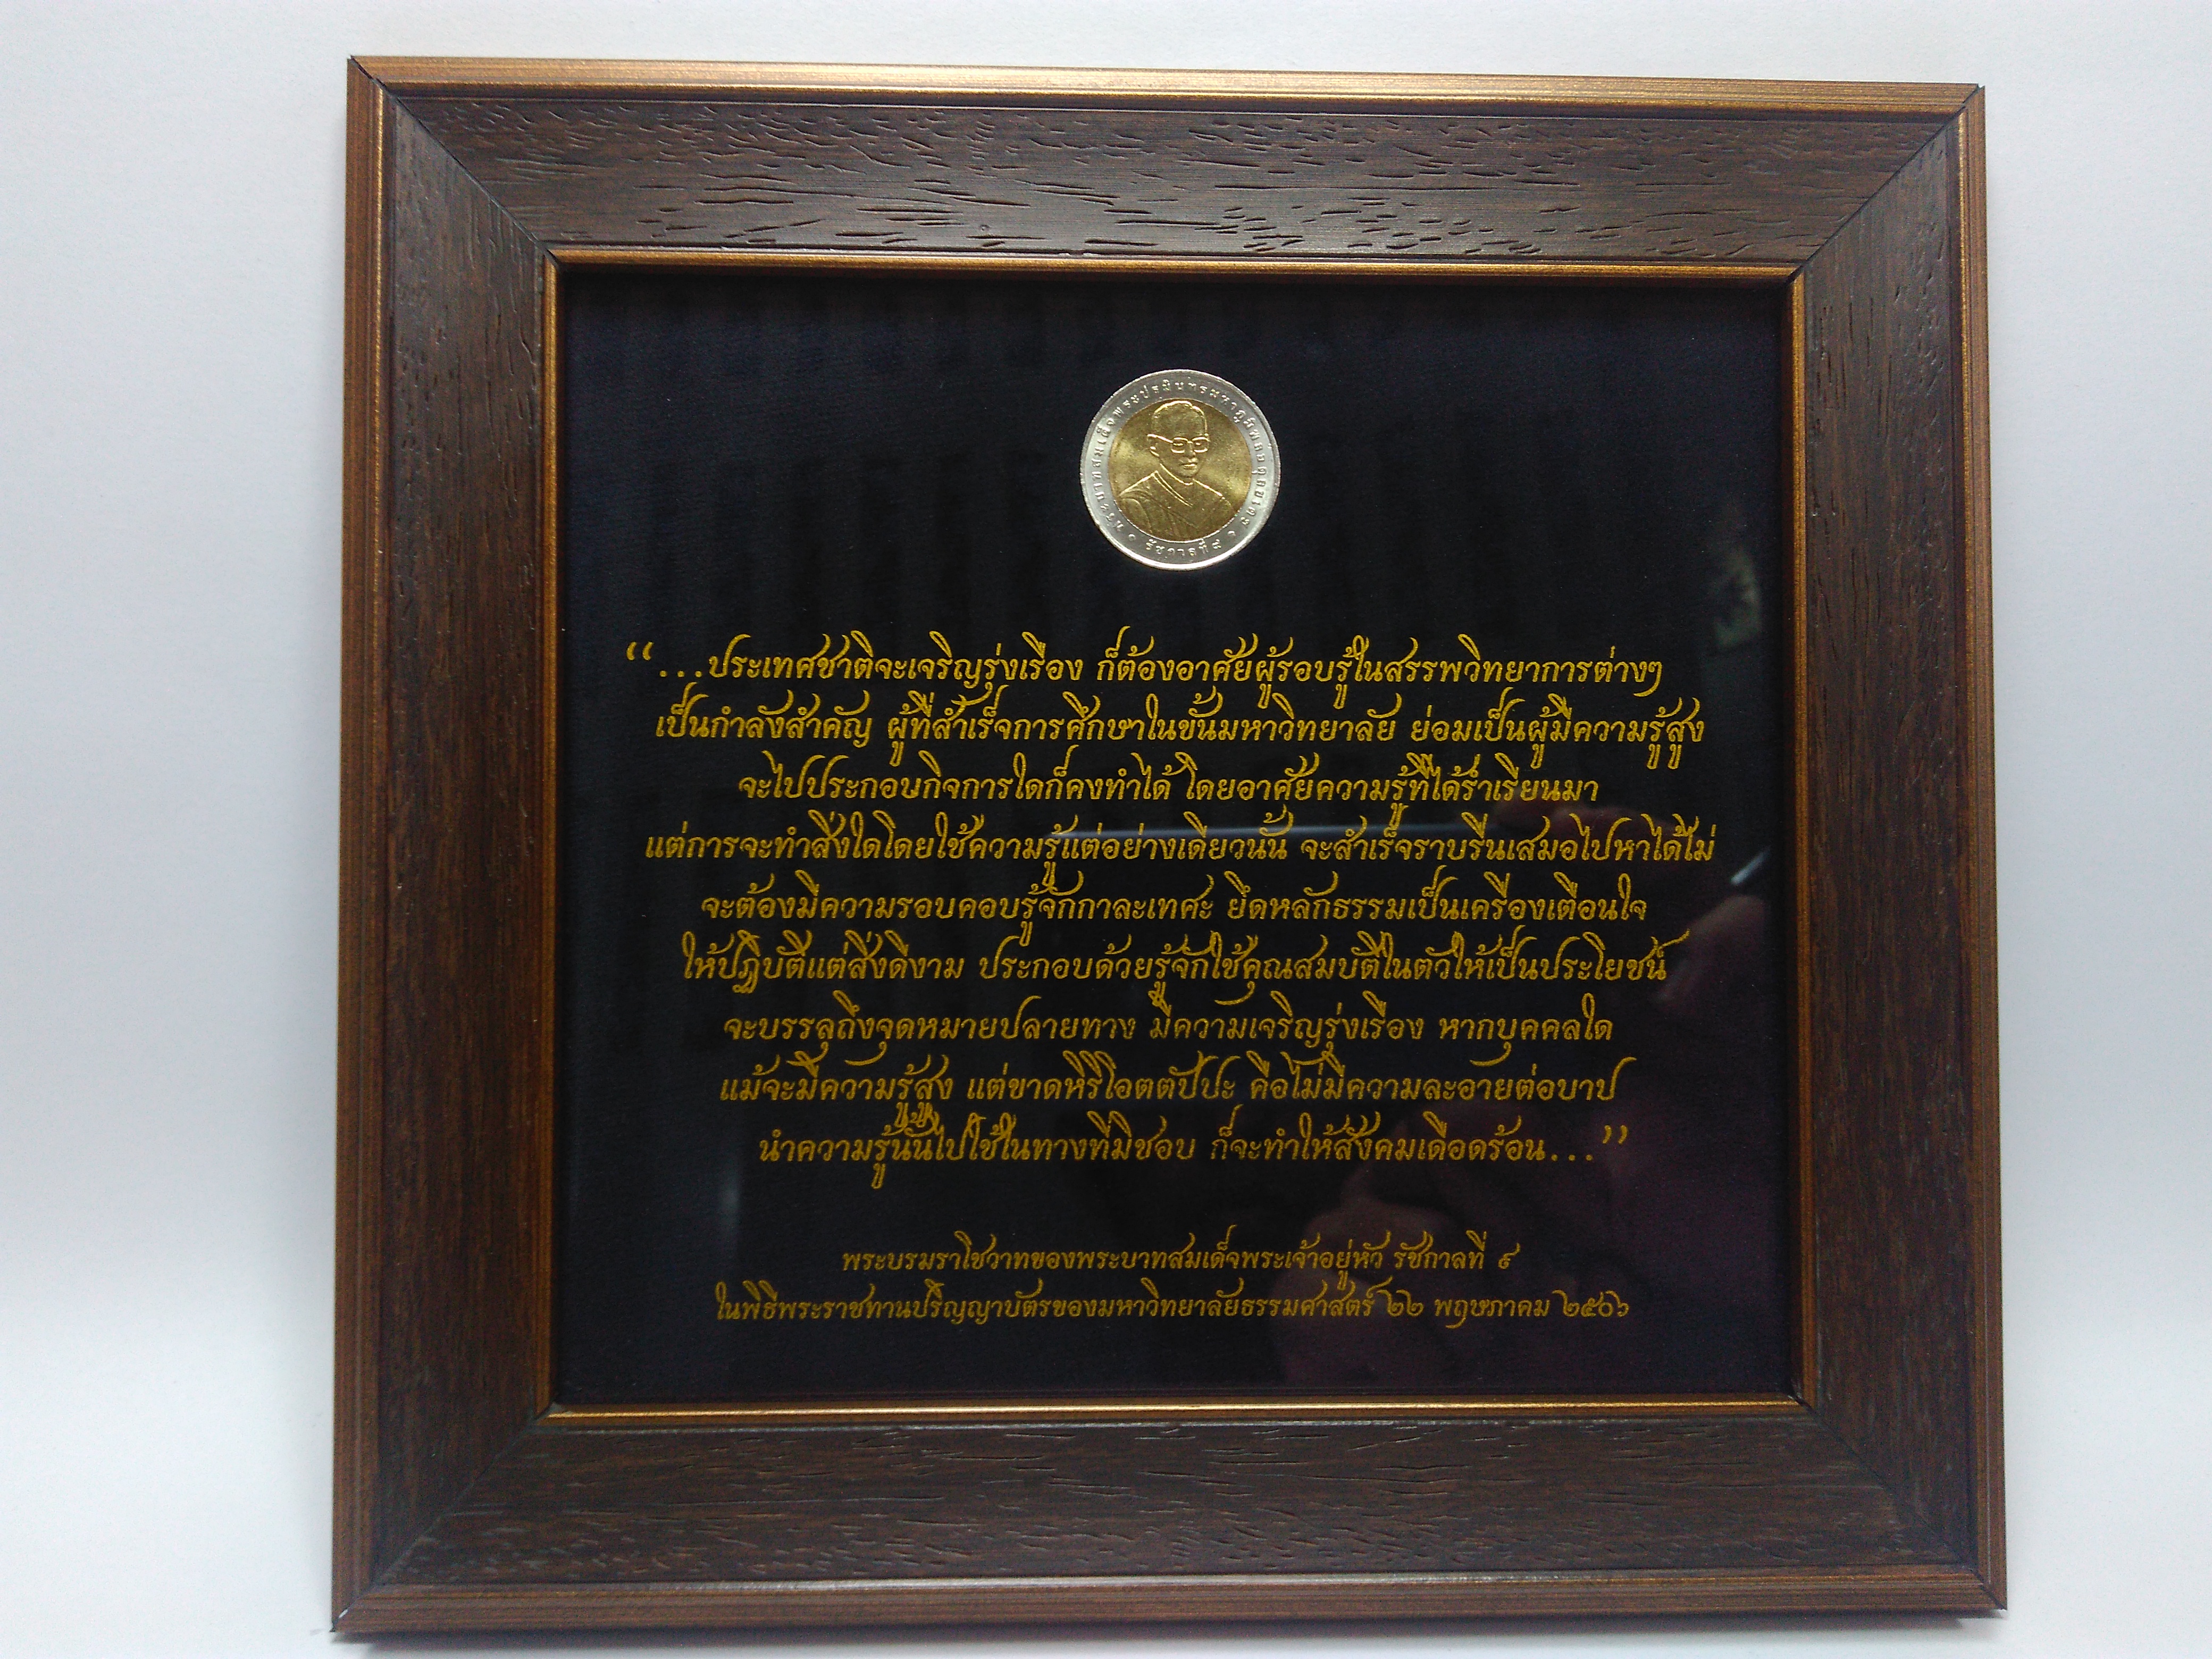 พระบาทสมเด็จพระปรมินทรมหาภูมิพลอดุลยเดช
รัชกาลที่ ๙
“...ประเทศชาติจะเจริญรุ่งเรือง ก็ต้องอาศัยผู้รอบรู้ในสรรพวิทยาการต่างๆ
เป็นกำลังสำคัญ ผู้ที่สำเร็จการศึกษาในชั้นมหาวิทยาลัย ย่อมเป็นผู้มีความรู้สูง
จะไปประกอบกิจการใดก็คงทำได้ โดยอาศัยความรู้ที่ได้ร่ำเรียนมา
แต่การจะทำสิ่งใดโดยใช้ความรู้แต่อย่างเดียวนั้น จะสำเร็จราบรื่นเสมอไปหาได้ไม่
จะต้องมีความรอบคอบรู้จักกาละเทศะ ยึดหลักธรรมเป็นเครื่องเตือนใจ
ให้ปฏิบัติแต่สิ่งดีงาม ประกอบด้วยรู้จักใช้คุณสมบัติในตัวให้เป็นประโยชน์
จะบรรลุถึงจุดหมายปลายทาง มีความเจริญรุ่งเรือง หากบุคคลใด
แม้จะมีความรู้สูง แต่ขาดหิริโอตตัปปะ คือไม่มีความละอายต่อบาป
นำความรู้นั้นไปใช้ในทางที่มิชอบ ก็จะทำให้สังคมเดือดร้อน...”
พระบรมราโชวาทของพระบาทสมเด็จพระเจ้าอยู่หัว รัชกาลที่ ๙
ในพิธีพระราชทานปริญญาบัตรของมหาวิทยาลัยธรรมศาสตร์ ๒๒ พฤษภาคม ๒๕๐๖